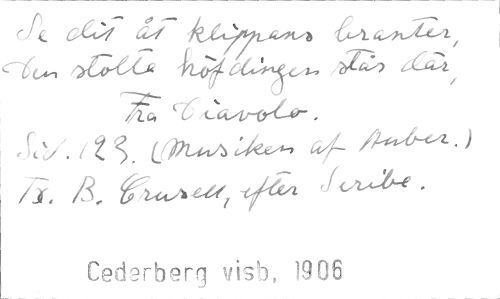 Se dit åt klippans branter,
Den stolta höfdingen står där,
Fra Diavolo.
Sid. 123. (Musiken af Auber.)
Tx. B. Crusell, efter Scribe.
Cederberg visb, 1906